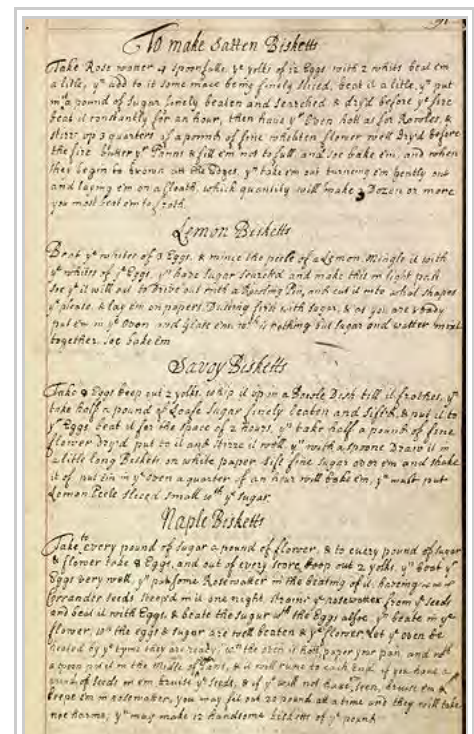 91
To make Satten Bisketts
Take Rose watter 4 spoonfulls, yᵉ yolks of 12 Eggs with 2 whits beat em
a litle, yⁿ add to it some mace being finely sliced, beat it a litle, yⁿ put
in a pound of sugar finely beaten and searched & dry'd before yᵉ fire
beat it constantly for an hour, then have yʳ Oven hott as for Rowles, &
stirr up 3 quarters of a pound of fine wheaten flower well Dry'd before
the fire butter yʳ Panns & fill em not to full, and soe bake em, and when
they begin to brown att the Edges, yⁿ take em out turning em gently out
and laying em on a cloath, which quantity will make 3 Dozen or more
you most beat em to froth.
Lemon Bisketts
Beat yᵉ whites of 3 Eggs, & mince the peele of a Lemon, Mingle it with
yᵉ whites of yᵉ Eggs, yⁿ have sugar searced and make this in light past
soe yᵗ it will out to Drive out with a Rowling Pin, and cut it into what shapes
yᵘ please, & lay em on papers, Dusting first with sugar, & as you are ready
put em in yᵉ Oven and Glase em, wᶜʰ is nothing but sugar and watter mixt
together, soe bake em
Savoy Bisketts
Take 8 Eggs keep out 2 yolks, whip it up in a Dish till it frothes, yⁿ
take half a pound of Loafe Sugar finely beaten and sifted, & put it to
yᵉ Eggs, beat it for the space of 2 hours, yⁿ take half a pound of fine
flower Dry'd put to it and stirre it well, yⁿ with a spoone Draw it in
a litle long Biskets on white paper sift fine sugar over em and shake
it of put em in yᵉ oven a quarter of an hour will bake em, yᵘ must put
Lemon Peele sliced small wᵗʰ yᵉ sugar.
Naple Bisketts
Take to every pound of sugar a pound of flower, & to every pound of sugar
& flower take 8 Eggs, and out of every score keep out 2 yolks, yⁿ beat yᵉ
Eggs very well, yⁿ put some Rosewatter in the beating of it, haveing
Corrander seeds steeped in it one night, straine yᵉ rosewatter from yᵉ seeds
and beat it with Eggs, & beate the sugar wᵗʰ the Eggs alsoe, yⁿ beate in yᵉ
flower, wⁿ the eggs & sugar are well beaten & yᵉ flower, let yᵉ oven be
heated by yᵉ tyme they are ready, wⁿ the oven is hott, paper your pan, and wᵗʰ
a spoon put it in the Midle of Pans, & it will runn to each End, if you have a
mind of seeds in em bruise yᵉ seeds, & if yᵘ will not have seen, bruise em &
steepe em in rosewater, you may sett out 20 pound at a time and they will take
noe harme, yᵘ may make 12 handsome biskitts of yᵉ pound